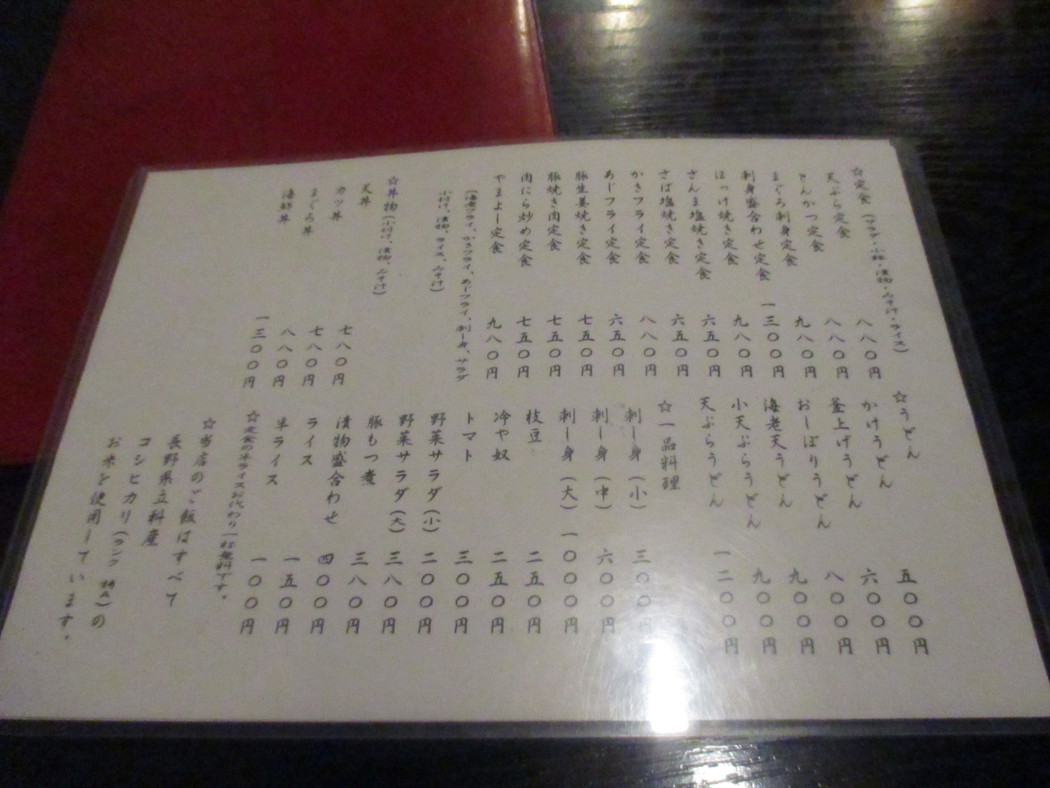 ☆定食(サラダ・小鉢・漬物・みそ汁・ライス)
天ぷら定食 八八〇円
とんかつ定食 八八〇円
まぐろ刺身定食 九八〇円
刺身盛合わせ定食 一三〇〇円
ほっけ焼き定食 九八〇円
さんま塩焼き定食 六五〇円
さば塩焼き定食 六五〇円
かきフライ定食 八八〇円
あじフライ定食 六五〇円
豚生姜焼き定食 七五〇円
豚焼き肉定食 七五〇円
肉にら炒め定食 七五〇円
やまよし定食 九八〇円
(海老フライ、かきフライ、あじフライ、刺し身、サラダ
小付け、漬物、ライス、みそ汁)
☆丼物(小付け、漬物、みそ汁)
天丼 七八〇円
カツ丼 七八〇円
まぐろ丼 八八〇円
海鮮丼 一三〇〇円
☆うどん
かけうどん 五〇〇円
釜上げうどん 六〇〇円
おしぼりうどん 八〇〇円
海老天うどん 九〇〇円
小天ぷらうどん 九〇〇円
天ぷらうどん 一二〇〇円
☆一品料理
刺し身(小) 三〇〇円
刺し身(中) 六〇〇円
刺し身(大) 一〇〇〇円
枝豆 二五〇円
冷や奴 二五〇円
トマト 三〇〇円
野菜サラダ(小) 二〇〇円
野菜サラダ(大) 三八〇円
豚もつ煮 三八〇円
漬物盛合わせ 四〇〇円
ライス 一五〇円
半ライス 一〇〇円
☆定食の半ライスお代わり一杯無料です。
☆当店のご飯はすべて
長野県立科産
コシヒカリ(ランク 特A)の
お米を使用しています。